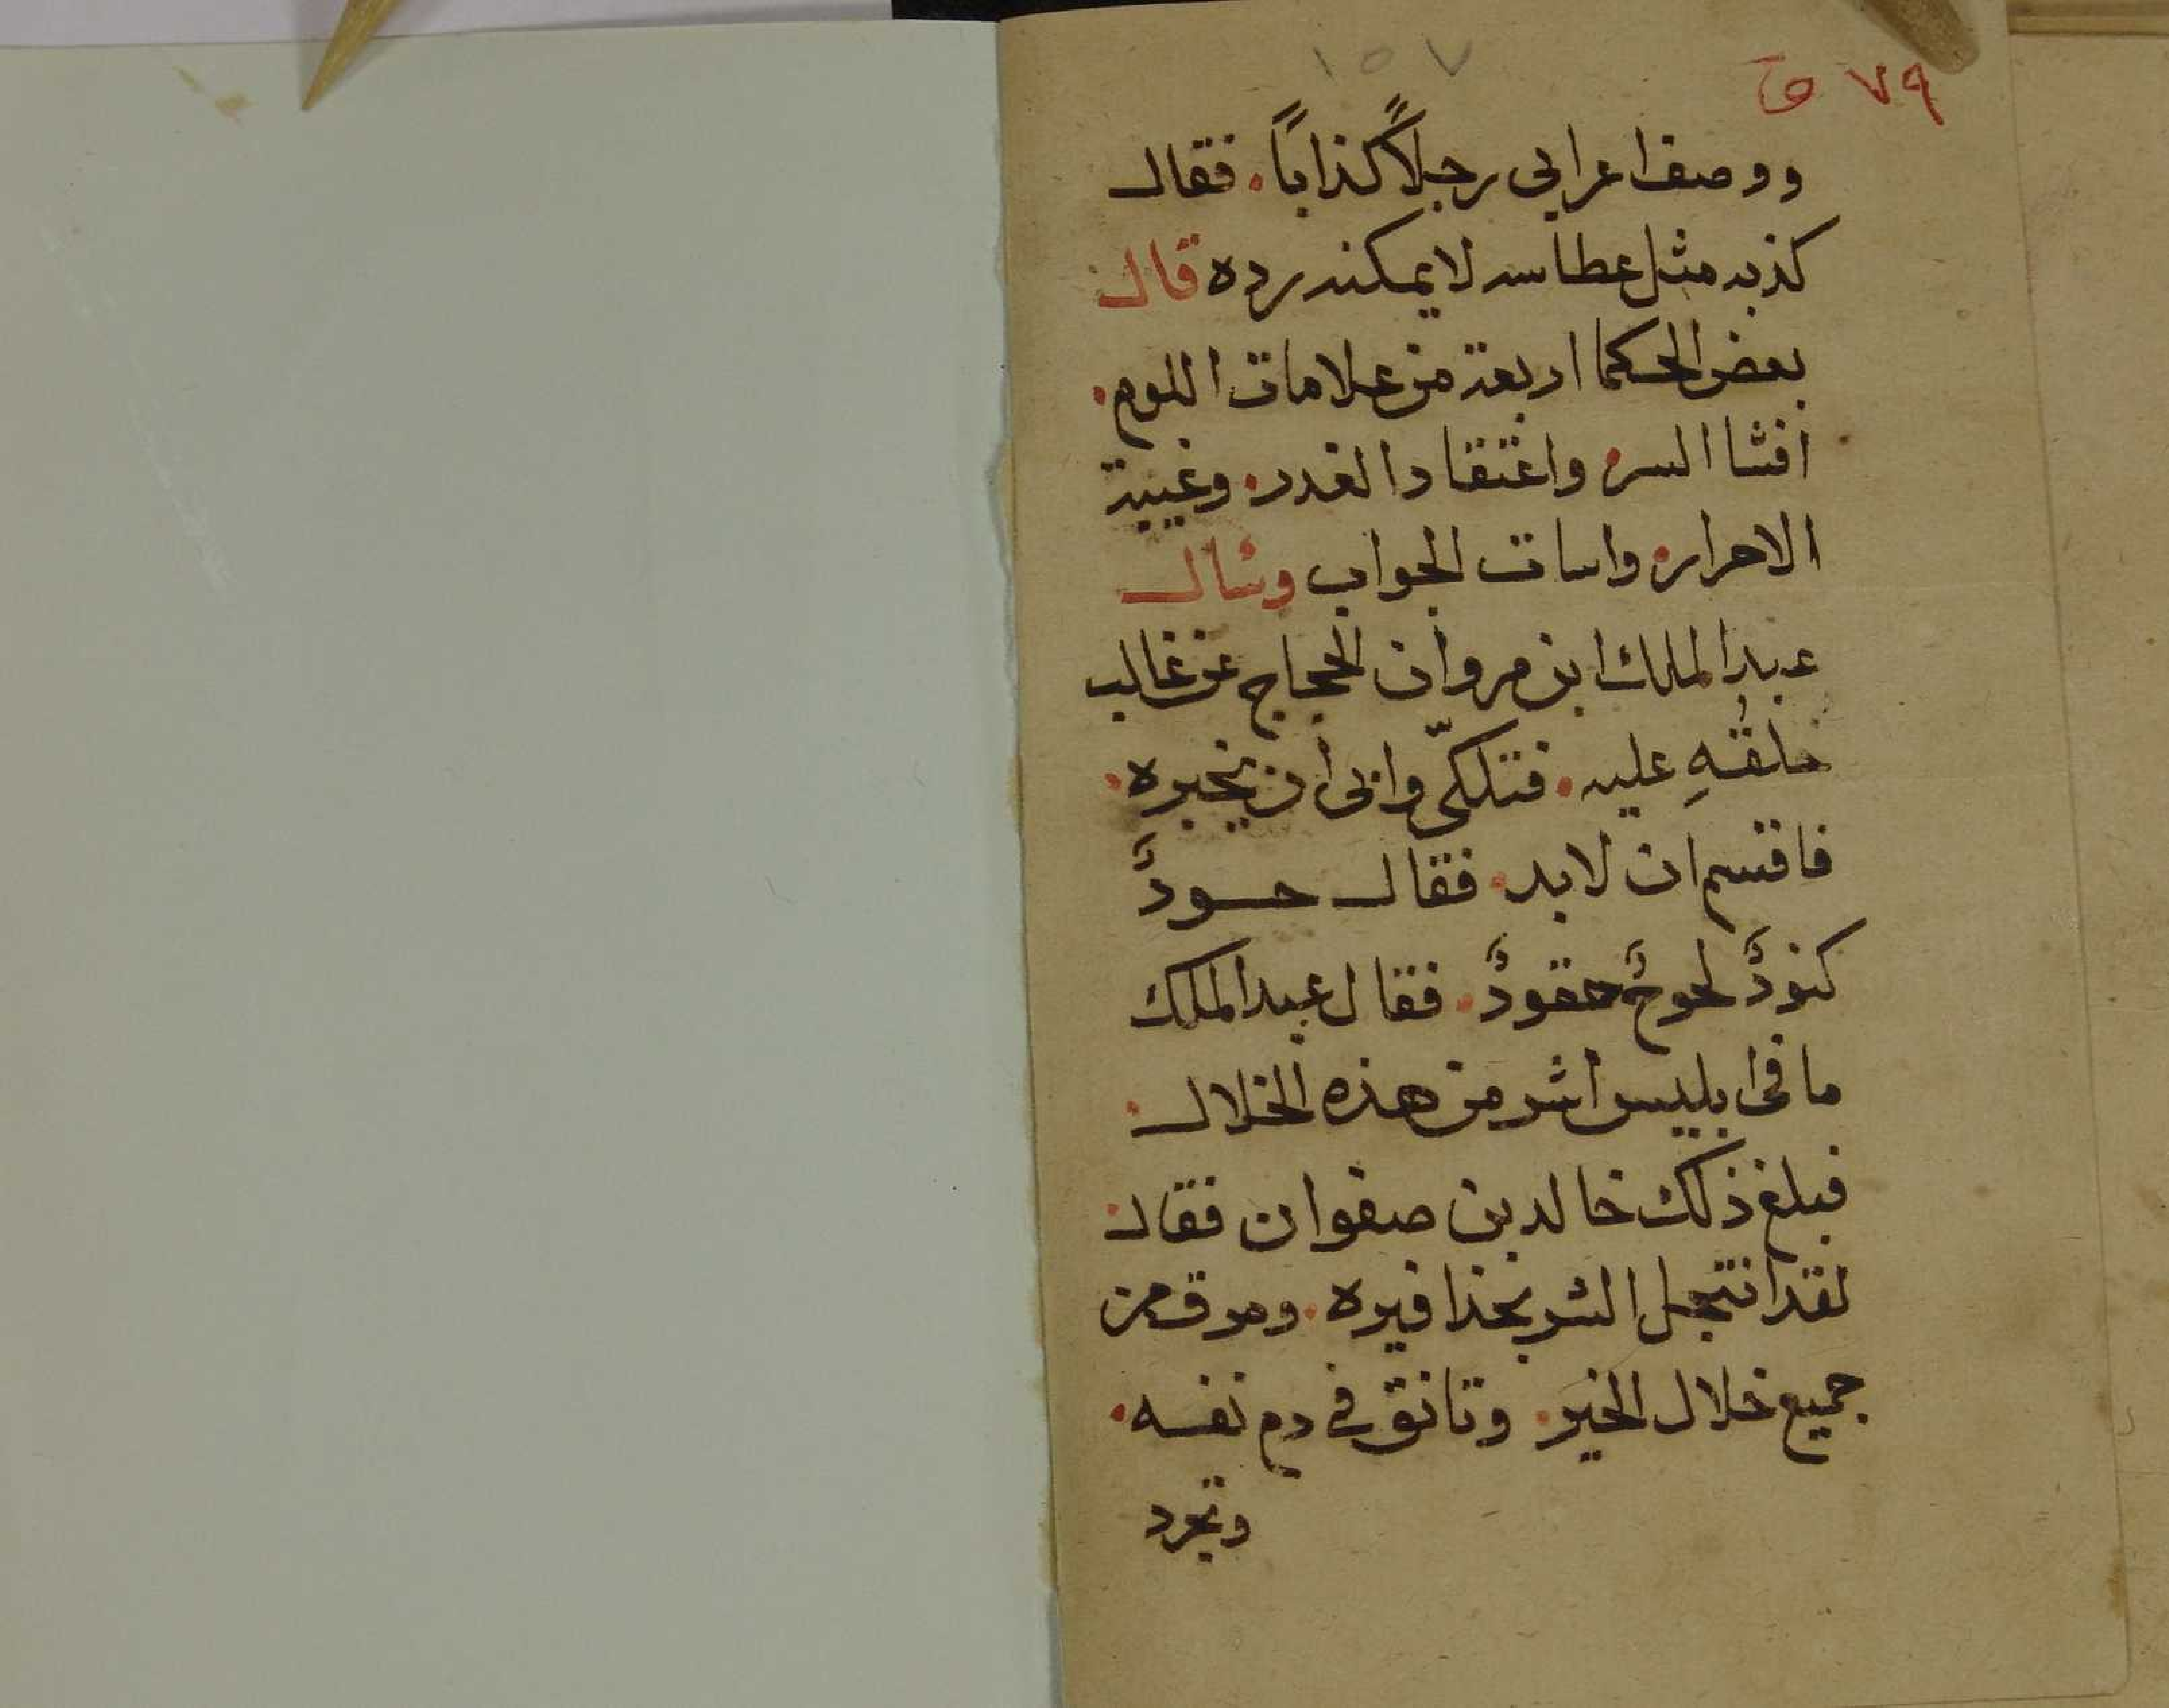 ١٥٧
٧٩ ق
ووصف اعرابى رجلاً كذاباً. فقال
كذبه مثل عطاسه لا يمكنه رده قال
بعض الحكما اربعة من علامات اللوم.
أفشا السر. واعتقاد الغدر. وغيبة
الاحرار. واسات الجواب وسال
عبد الملك ابن مروان الحجاج عن غالب
خلقُهِ عليه. فتلكّى وابى ان يخبره.
فاقسم ان لابد. فقال حسودٌ
كنودٌ لحوحٌ حقودٌ. فقال عبد الملك
ما فى ابليس اشر من هذه الخلال.
فبلغ ذلك خالد بن صفوان فقال.
لقد انتجل الشر بحذافيره. ومرق من
جميع خلال الخير. وتانق فى دم نفسه.
وتجرد